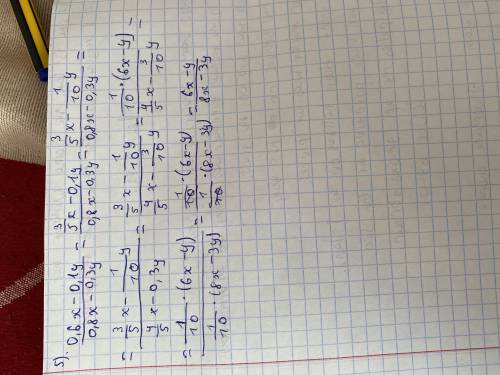 5). (0,6x-0,1y)/(0,8x-0,3y) = (3/5x-0,1y)/(0,8x-0,3y) = (3/5x-1/10y)/(0,8x-0,3y) =
= (3/5x-1/10y)/(4/5x-0,3y) = (3/5x-1/10y)/(4/5x-3/10y) = (1/10·(6x-y))/(4/5x-3/10y) =
= (1/10·(6x-y))/(1/10·(8x-3y)) = (1/10·(6x-y))/(1/10·(8x-3y)) = (6x-y)/(8x-3y)